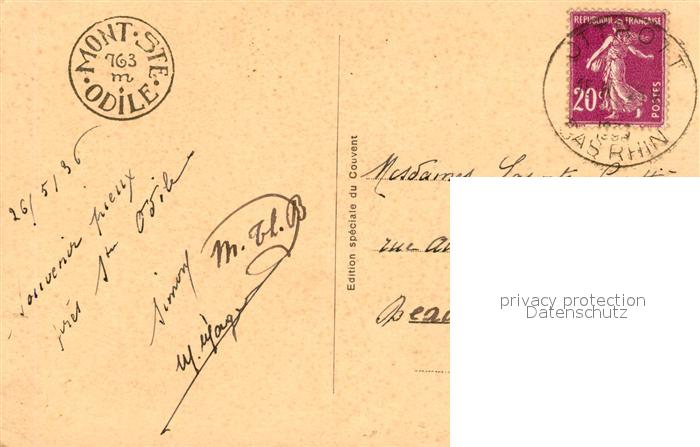 MONT·STE·ODILE
763
m
RÉPUBLIQUE FRANÇAISE
20c
POSTES
OTTROTT
BAS RHIN
26/5/36
Souvenir pieux
près Ste Odile
Simon
M. Th. B
Edition spéciale du Couvent
Mesdames
rue
privacy protection
Datenschutz